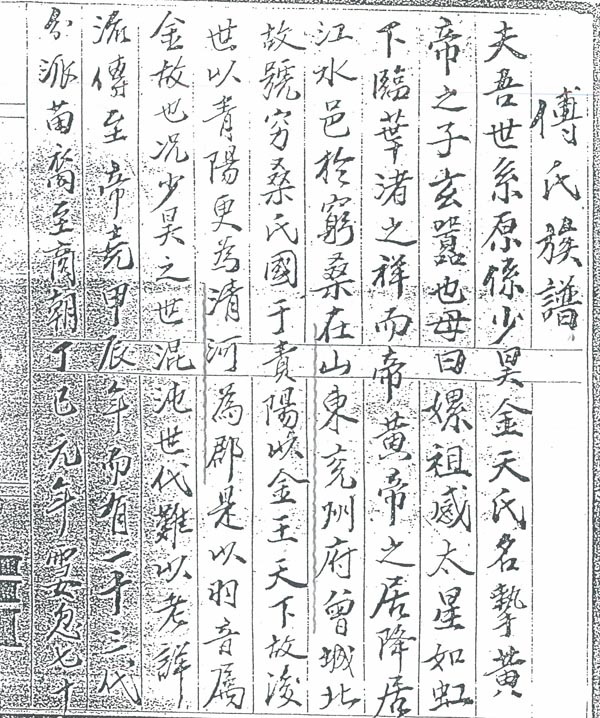 傅氏族譜
夫吾世系原係少昊金天氏名摯黃
帝之子玄囂也母曰嫘祖感太星如虹
下臨華渚之祥而帝黃帝之居降居
江水邑於窮桑在山東兗州府曾城北
故號穷桑氏國于責陽以金王天下故後
世以青陽更為清河為郡是以羽音屬
金故也况少昊之世混沌世代難以考詳
派傳至帝堯甲辰年而有一千三代
分派苗裔至商朝丁巳元年七十